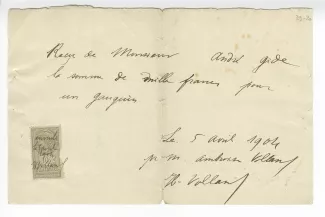 Reçu de Monsieur André Gide
la somme de mille francs pour
un gauguin
Le 5 avril 1904
pr m ambroise Vollard
Vollard